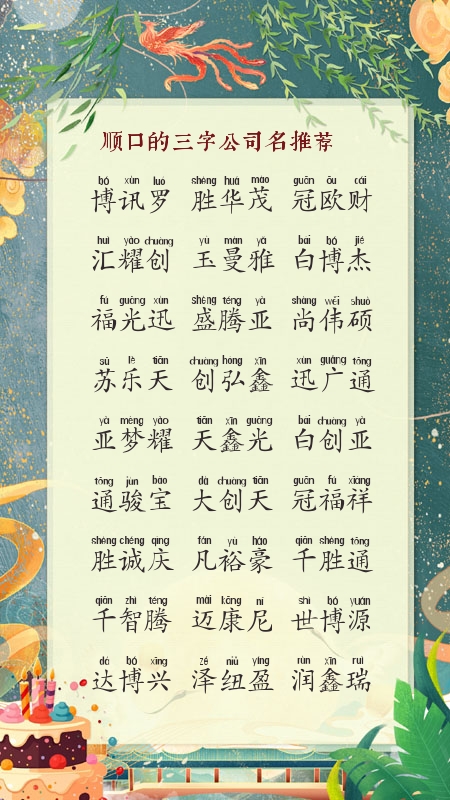 顺口的三字公司名推荐
bó xùn luó shèng huá mào guān ōu cái
博讯罗 胜华茂 冠欧财
huì yào chuàng yù màn yǎ bái bó jié
汇耀创 玉曼雅 白博杰
fú guāng xùn shèng téng yà shàng wěi shuò
福光迅 盛腾亚 尚伟硕
sū lè tiān chuàng hóng xīn xùn guǎng tōng
苏乐天 创弘鑫 迅广通
yà mèng yào tiān xīn guāng bái chuàng yà
亚梦耀 天鑫光 白创亚
tōng jùn bǎo dà chuàng tiān guān fú xiáng
通骏宝 大创天 冠福祥
shèng chéng qìng fán yù háo qiān shèng tōng
胜诚庆 凡裕豪 千胜通
qiān zhì téng mài kāng ní shì bó yuán
千智腾 迈康尼 世博源
dá bó xīng zé niǔ yíng rùn xīn ruì
达博兴 泽纽盈 润鑫瑞